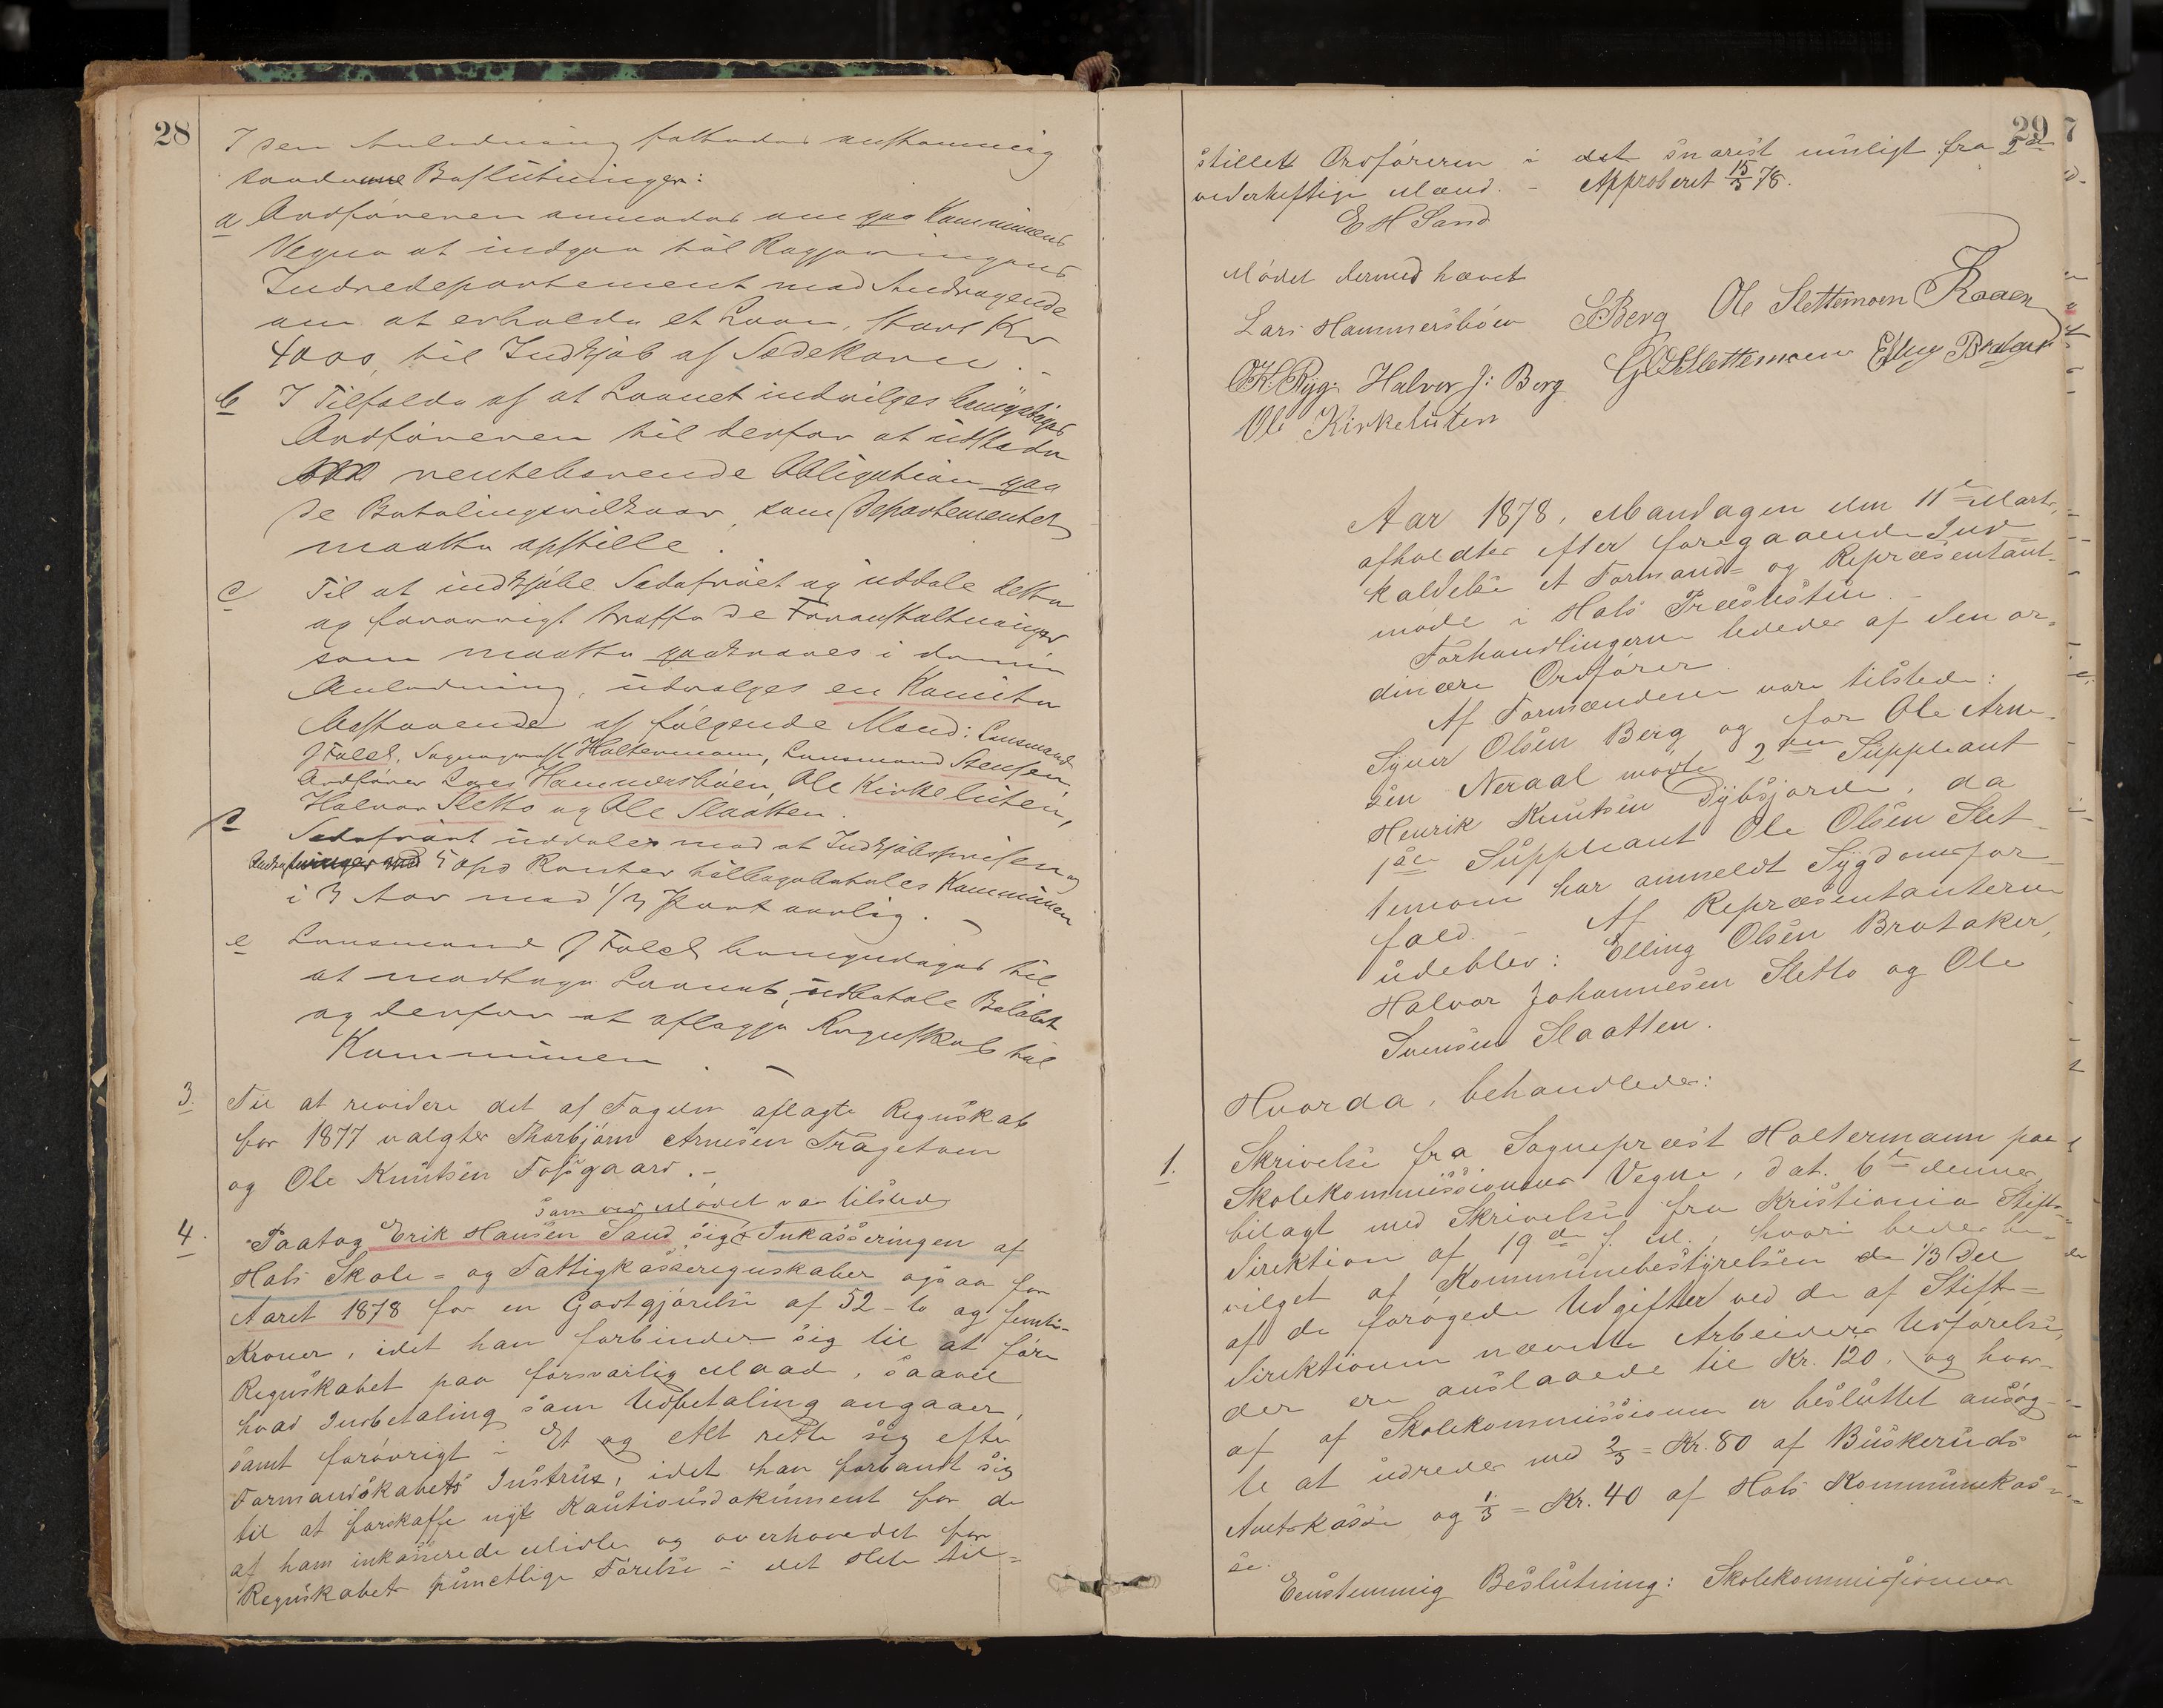 28
I den Anledning fattedes enstemmig
saadanne Beslutninger:
a Ordføreren anmodes om paa Kommunens
Vegne at indgaa til Regjeringens
Indredepartement med Andragende
om at erholde et Laan, stort Kr
4000, til Indkjøb af Sædekorn.-
b I Tilfælde af at Laanet indvilges bemyndiges
Ordføreren til derfor at udstede
rentebærende Obligation paa
de Betalingsvilkaar, som Departementet
maatte opstille.
c Til at indkjøbe Sædefrøet og uddele dette
og forøvrigt træffe de Foranstaltninger
som maatte paakræves i denne
Anledning, udvælges en Komite
bestaaende af følgende Mænd: Lensmand
J Foledt, Sogneprest Holtermann, Lensmand Stensen,
Ordfører Lars Hammersbøen, Ole Kirkeluten,
Halvor Sletto og Ole Slaatten.
Sædefrøet uddeles mod at Indkjøbsprisen og
5 % Renter tilbagebetales Kommunen
i 3 Aar med 1/3 Part aarlig. -
e Lensmand J Foledt bemyndiges til
at modtage Laanet, udbetale Beløbet
og derfor at aflægge Regnskab til
Kommunen. -
3. Til at revidere det af Fogden aflagte Regnskab
for 1877 valgtes Thorbjørn Arnesen Trageton
og Ole Knutsen Fossgaard.-
som ved Mødet var tilstede
4. Paatog Erik Hansen Sand sig Inkasseringen af
Hols Skole- og Fattigkasseregnskaber ogsaa for
Aaret 1878 for en Godtgjørelse af 52 - to og femti-
Kroner, idet han forbinder sig til at føre
Regnskabet paa forsvarlig Maade, saavel
hvad Indbetaling som Udbetaling angaaer,
samt forøvrigt i Et og Alt rette sig efter
Formandskabets Instrux, idet han forbandt sig
til at forskaffe nyt Kautionsdokument for de
af ham inkasserede Midler og overhovedet for
Regnskabets punctlige Førelse i det Hele til=
29
stillet Ordføreren i det snarest muligt fra 2de
vederheftige Mænd. - Approberet 15/3 78.
E H Sand
Mødet dermed hævet
Lars Hammersbøen S Berg Ole Slettemoen
O K Ryg. Halvor J: Berg G O Slettemoen Elling Brataker
Ole Kirkeluten
Aar 1878, Mandagen den 11te Marts,
afholdtes efter foregaaende Ind-
kaldelse et Formands- og Repræsentant-
møde i Hols Præstestue. -
Forhandlingerne lededes af den or-
dinære Ordfører.
Af Formændene vare tilstede:
Syver Olsen Berg og for Ole Arne-
sen Neraal mødte 2den Suppleant
Henrik Knutsen Dybsjorde, da
1ste Suppleant Ole Olsen Slet-
temoen har anmeldt Sygdomsfor-
fald. - Af Repræsentanterne
udeblev: Elling Olsen Brataker,
Halvor Johannesen Sletto og Ole
Svensen Slaatten.
Hvorda, behandledes:
1. Skrivelse fra Sogneprest Holtermann paa
Skolekommissionens Vegne, dat. 6te dennes
bilagt med Skrivelse fra Kristiania Stifts-
Direktion af 19de f. M., hvori bedes be-
vilget af Kommunebestyrelsen de 1/3 Del
af de forøgede Udgifter ved de af Stift=
Direktionen nævnte Arbeiders Udførelse,
der ere anslaaede til Kr. 120. og hvor-
af af Skolekommissionen er besluttet ansøg-
te at udredes med 2/3 = Kr. 80 af Buskeruds
Amtskasse og 1/3 = Kr. 40 af Hols Kommunekas-
se.
Eenstemmig Beslutning: Skolekommissionens